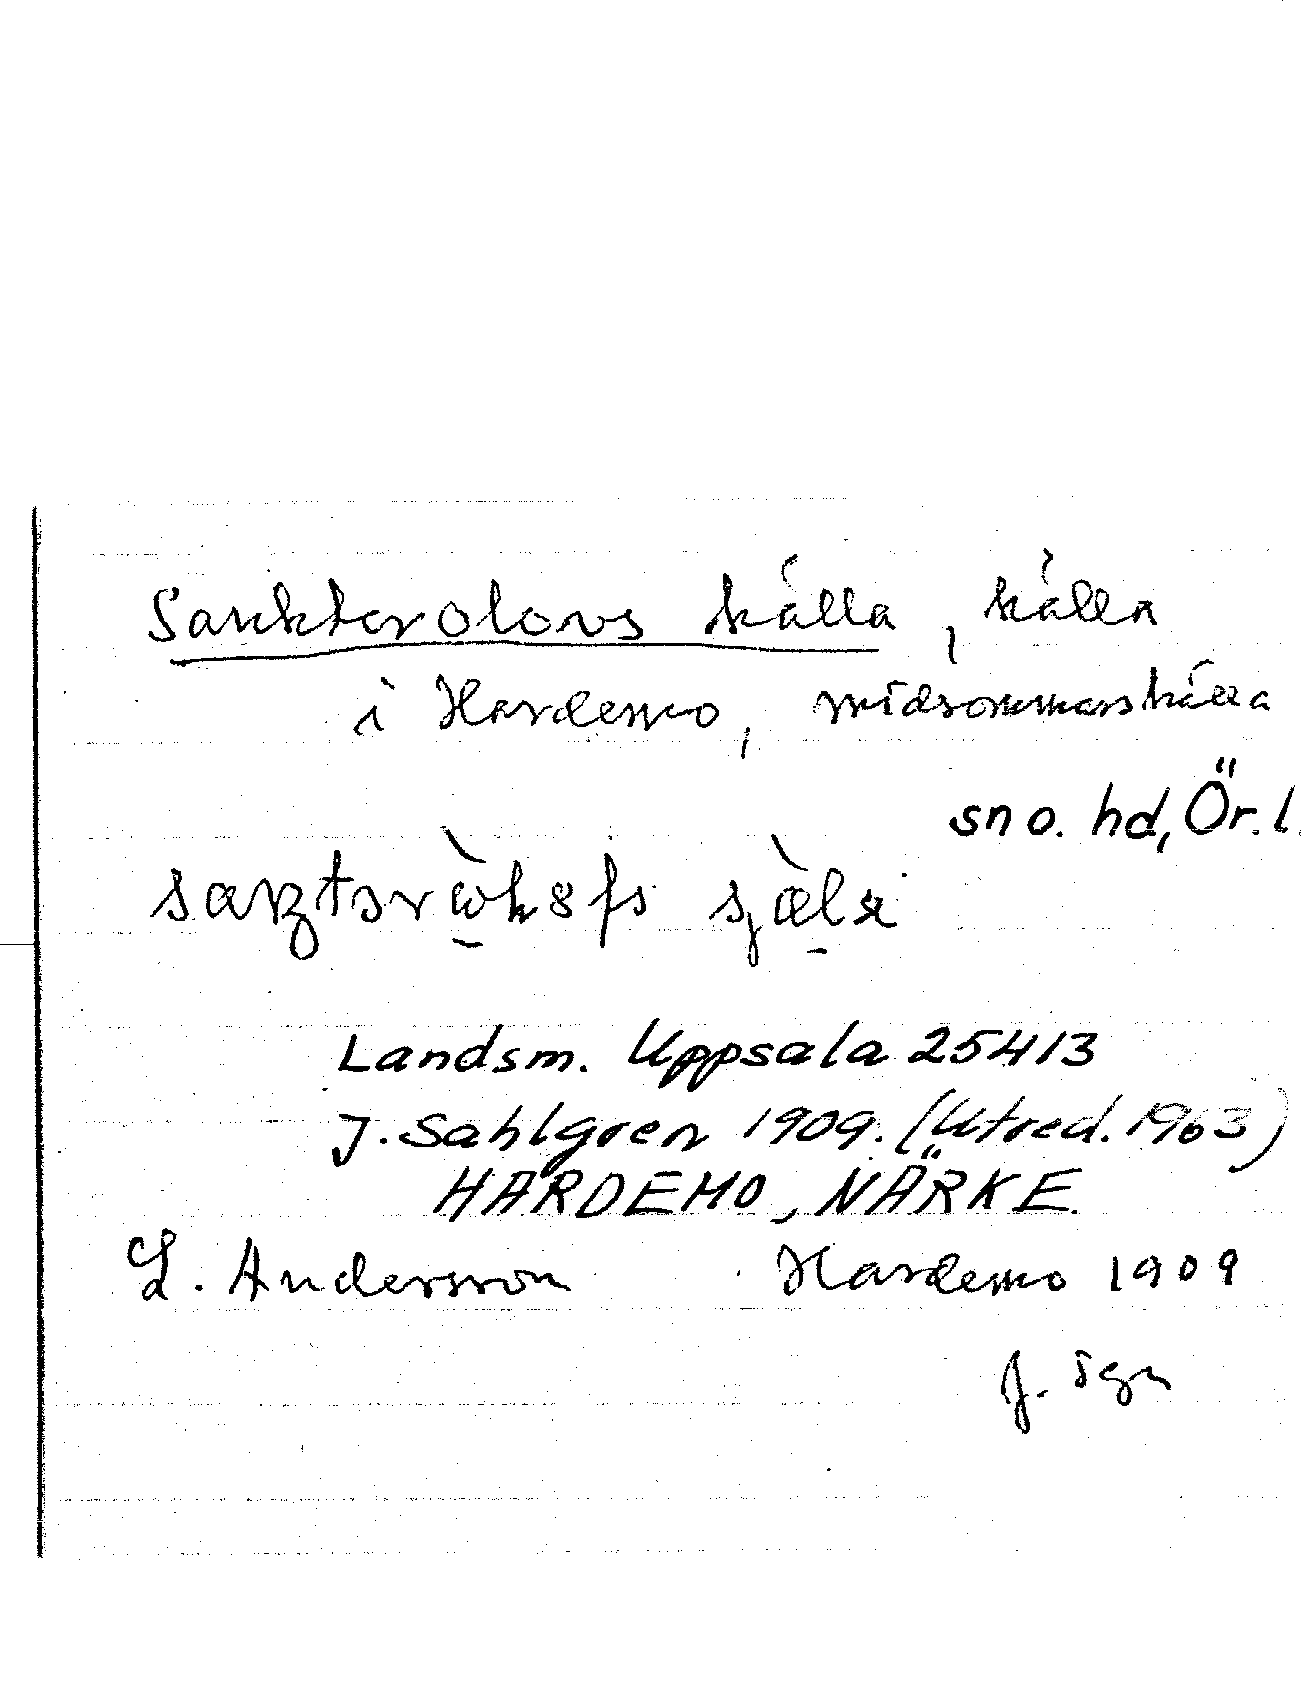 Sankterolovs källa, källa
i Hardemo, midsommarskälla
sn o. hd, Ör. l.
Landsm. Uppsala 25413
J. Sahlgren 1909. (Utred. 1963)
HARDEMO, NÄRKE.
L. Andersson Hardemo 1909
J. Sgn